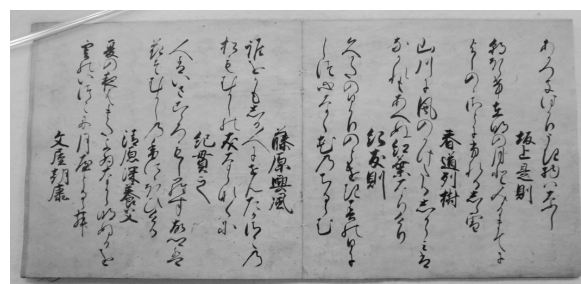 あかつきはかりうき物はなし
坂上是則
朝ほらけ有明の月とみるまてに
よしのゝさとにふれるしら雪
春道列樹
山川に風のかけたるしからみは
なかれもあへぬ紅葉なりけり
紀友則
久かたのひかりのとけき春の日に
しつ心なく花のちるらむ
藤原興風
誰をかもしる人にせんたかさこの
松もむかしの友ならなくに
紀貫之
人はいさこゝろもしらす故郷は
花そむかしの香ににほひける
清原深養父
夏の夜はまたよひなから明ぬるを
雲のいつこに月やとるらむ
文屋朝康